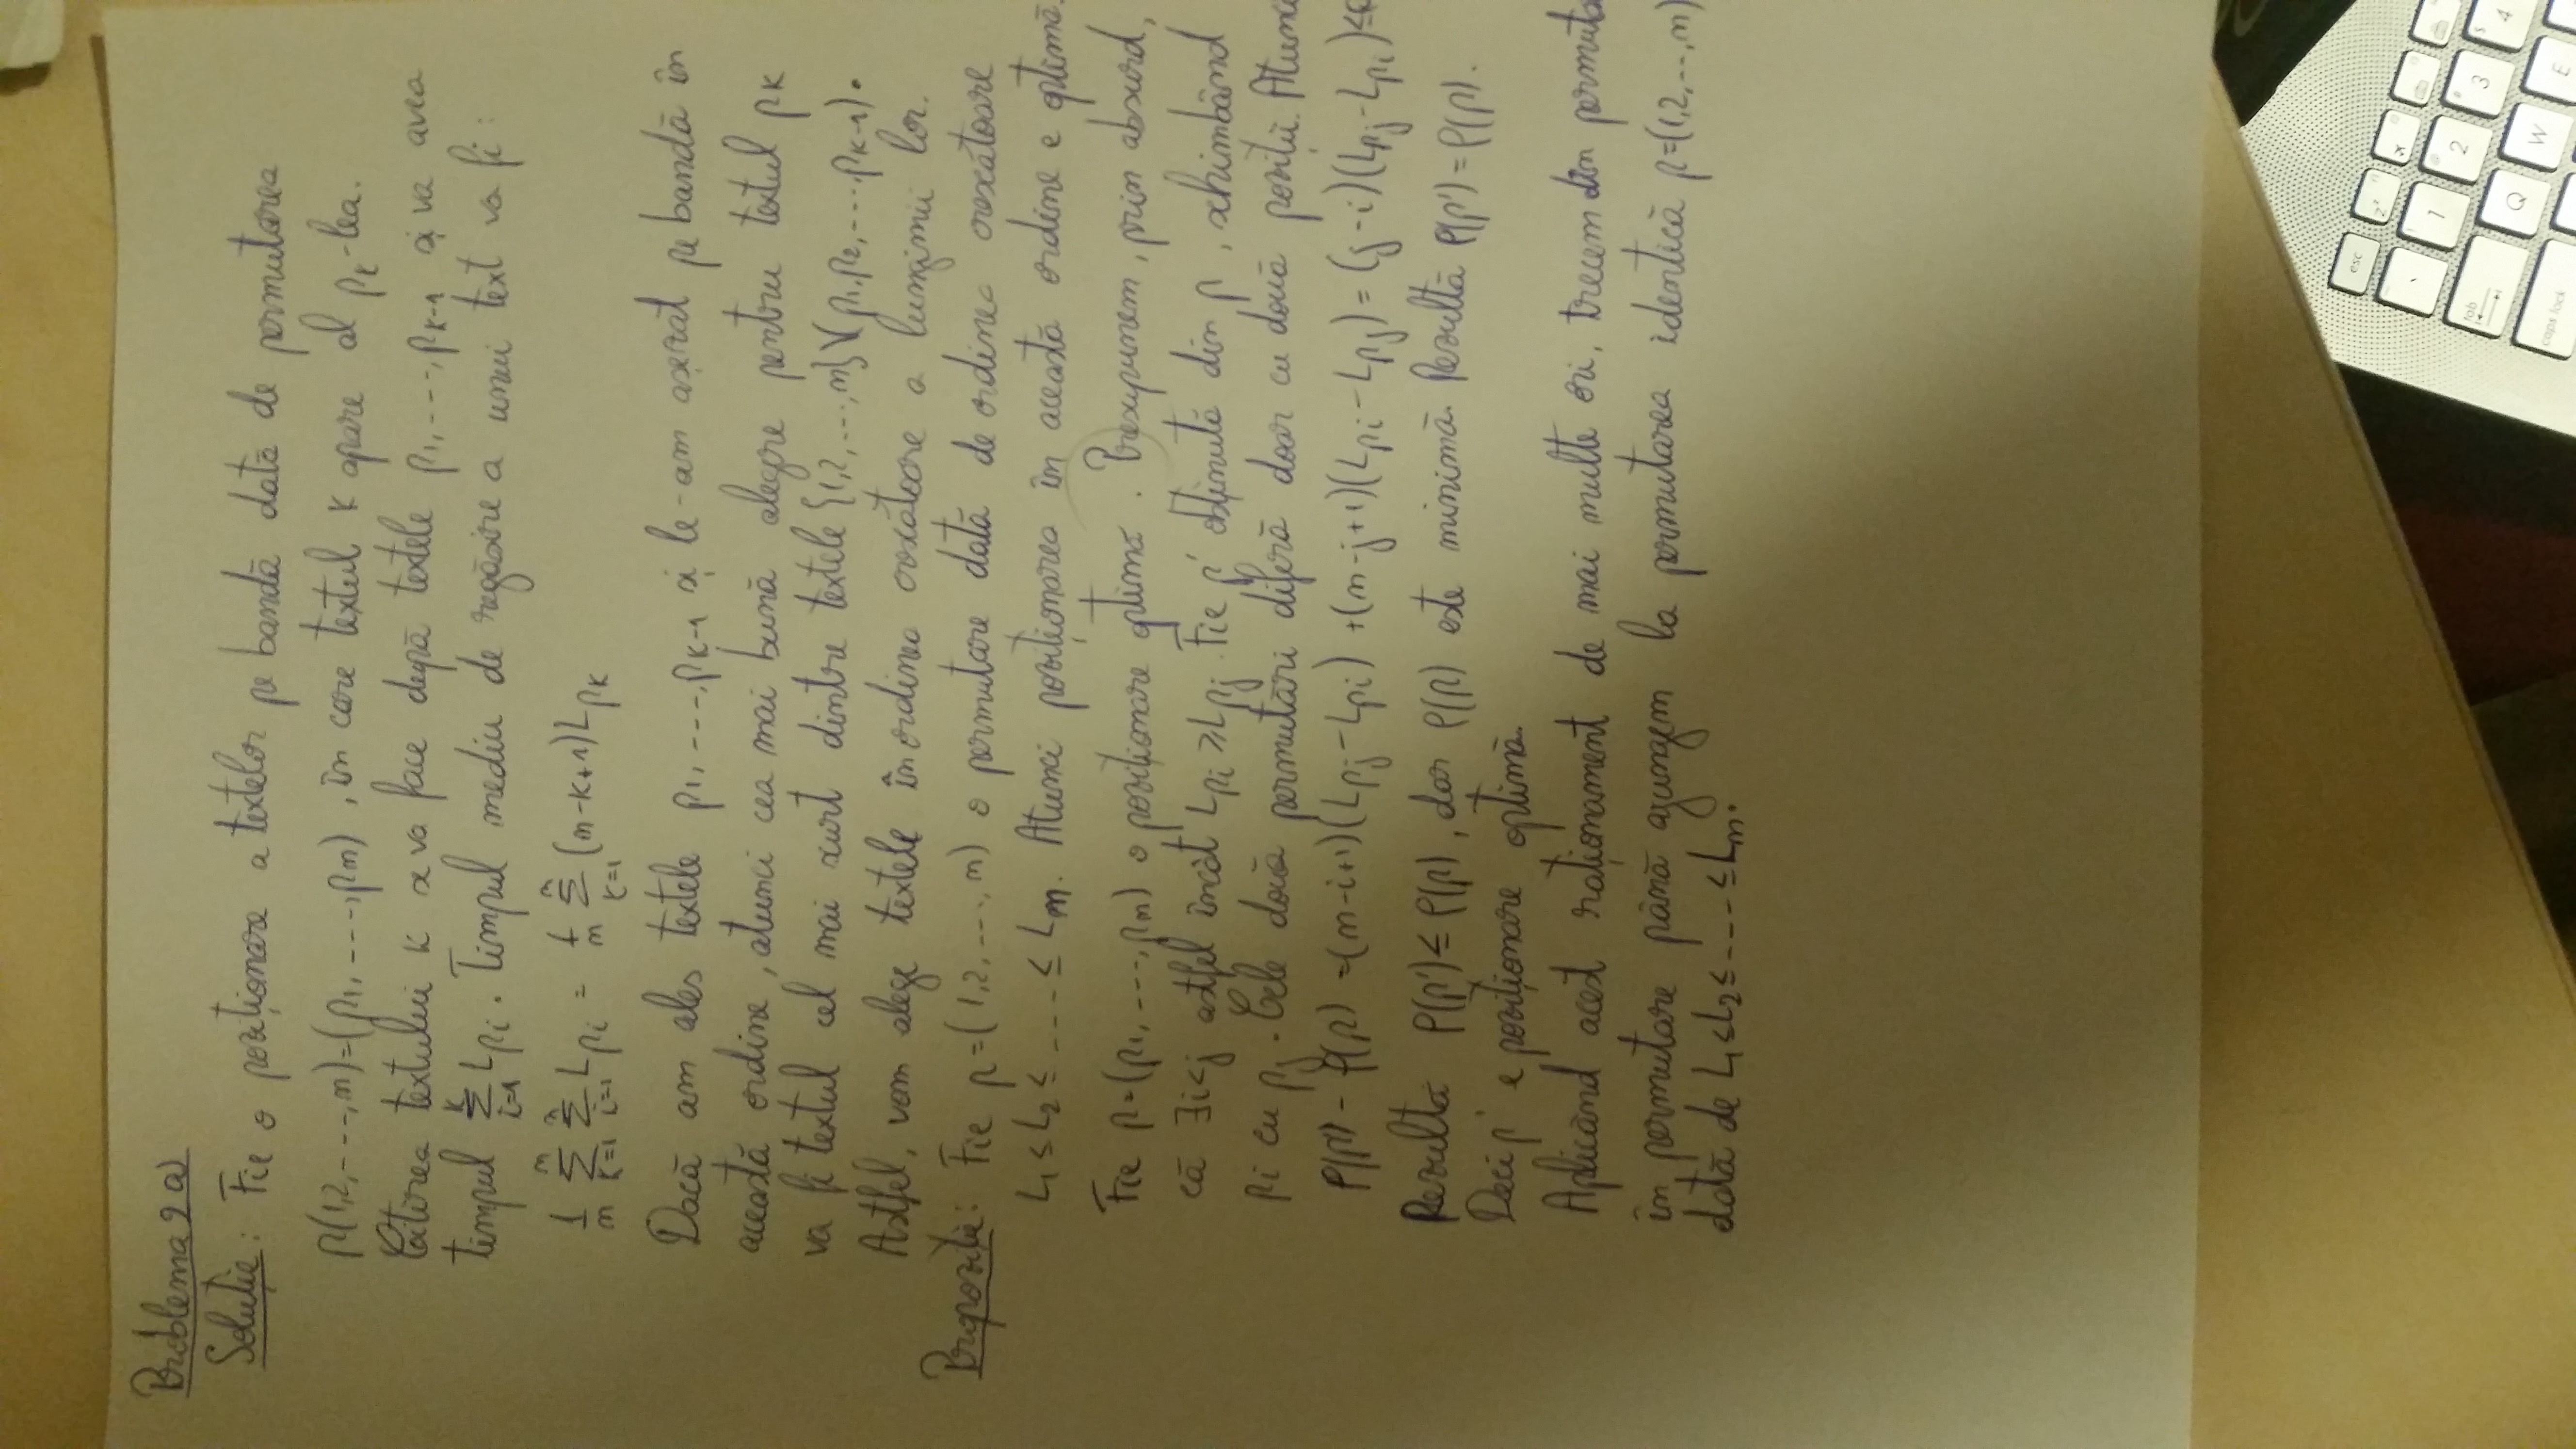 Problema 2 a)
Soluție: Fie o poziționare a textelor pe bandă dată de permutarea
p(1,2,----,n)=(p1,----,pn), în care textul k apare al pk-lea.
Citirea textului k se va face după textele p1,----,pk-1 și va avea
timpul k∑i=1 Lpi. Timpul mediu de regăsire a unui text va fi:
1/n n∑k=1 n∑i=1 Lpi = 1/n n∑k=1 (n-k+1)Lpk
Dacă am ales textele p1,----,pk-1 și le-am așezat pe bandă în
această ordine, atunci cea mai bună alegere pentru textul pk
va fi textul cel mai scurt dintre textele {1,2,---,n}\(p1,p2,----,pk-1).
Astfel, vom alege textele în ordinea crescătoare a lungimii lor.
Propoziție: Fie p=(1,2,----,n) o permutare dată de ordinea crescătoare
L1≤L2≤----≤Ln. Atunci poziționarea în această ordine e optimă.
Fie p=(p1,----,pn) o poziționare optimă. Presupunem, prin absurd,
că ∃i<j astfel încât Lpi≥Lpj. Fie p' obținută din p, schimbând
pi cu pj. Cele două permutări diferă doar cu două poziții. Atunc
f(p')-f(p)=(n-i+1)(Lpj-Lpi)+(n-j+1)(Lpi-Lpj)=(j-i)(Lpj-Lpi)≤0
Rezultă f(p')≤f(p), dar f(p) este minimă. Rezultă f(p')=f(p).
Deci p' e poziționare optimă.
Aplicând acest raționament de mai multe ori, trecem din permuta
în permutare până ajungem la permutarea identică p=(1,2,--,n)
dată de L1≤L2≤----≤Ln.
esc
z²
1
2
3
4
tab
Q
W
E
caps lock